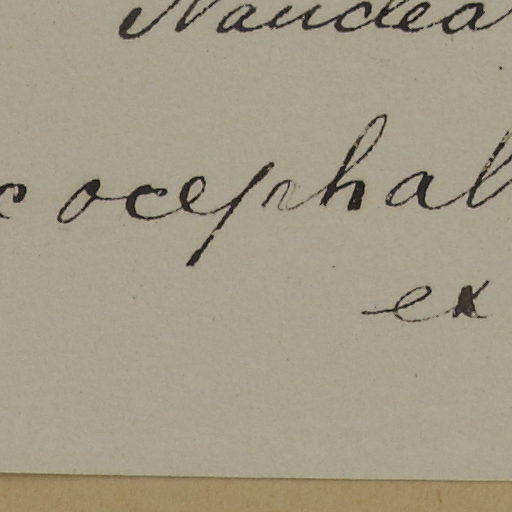 Naudea
cocephal
ex